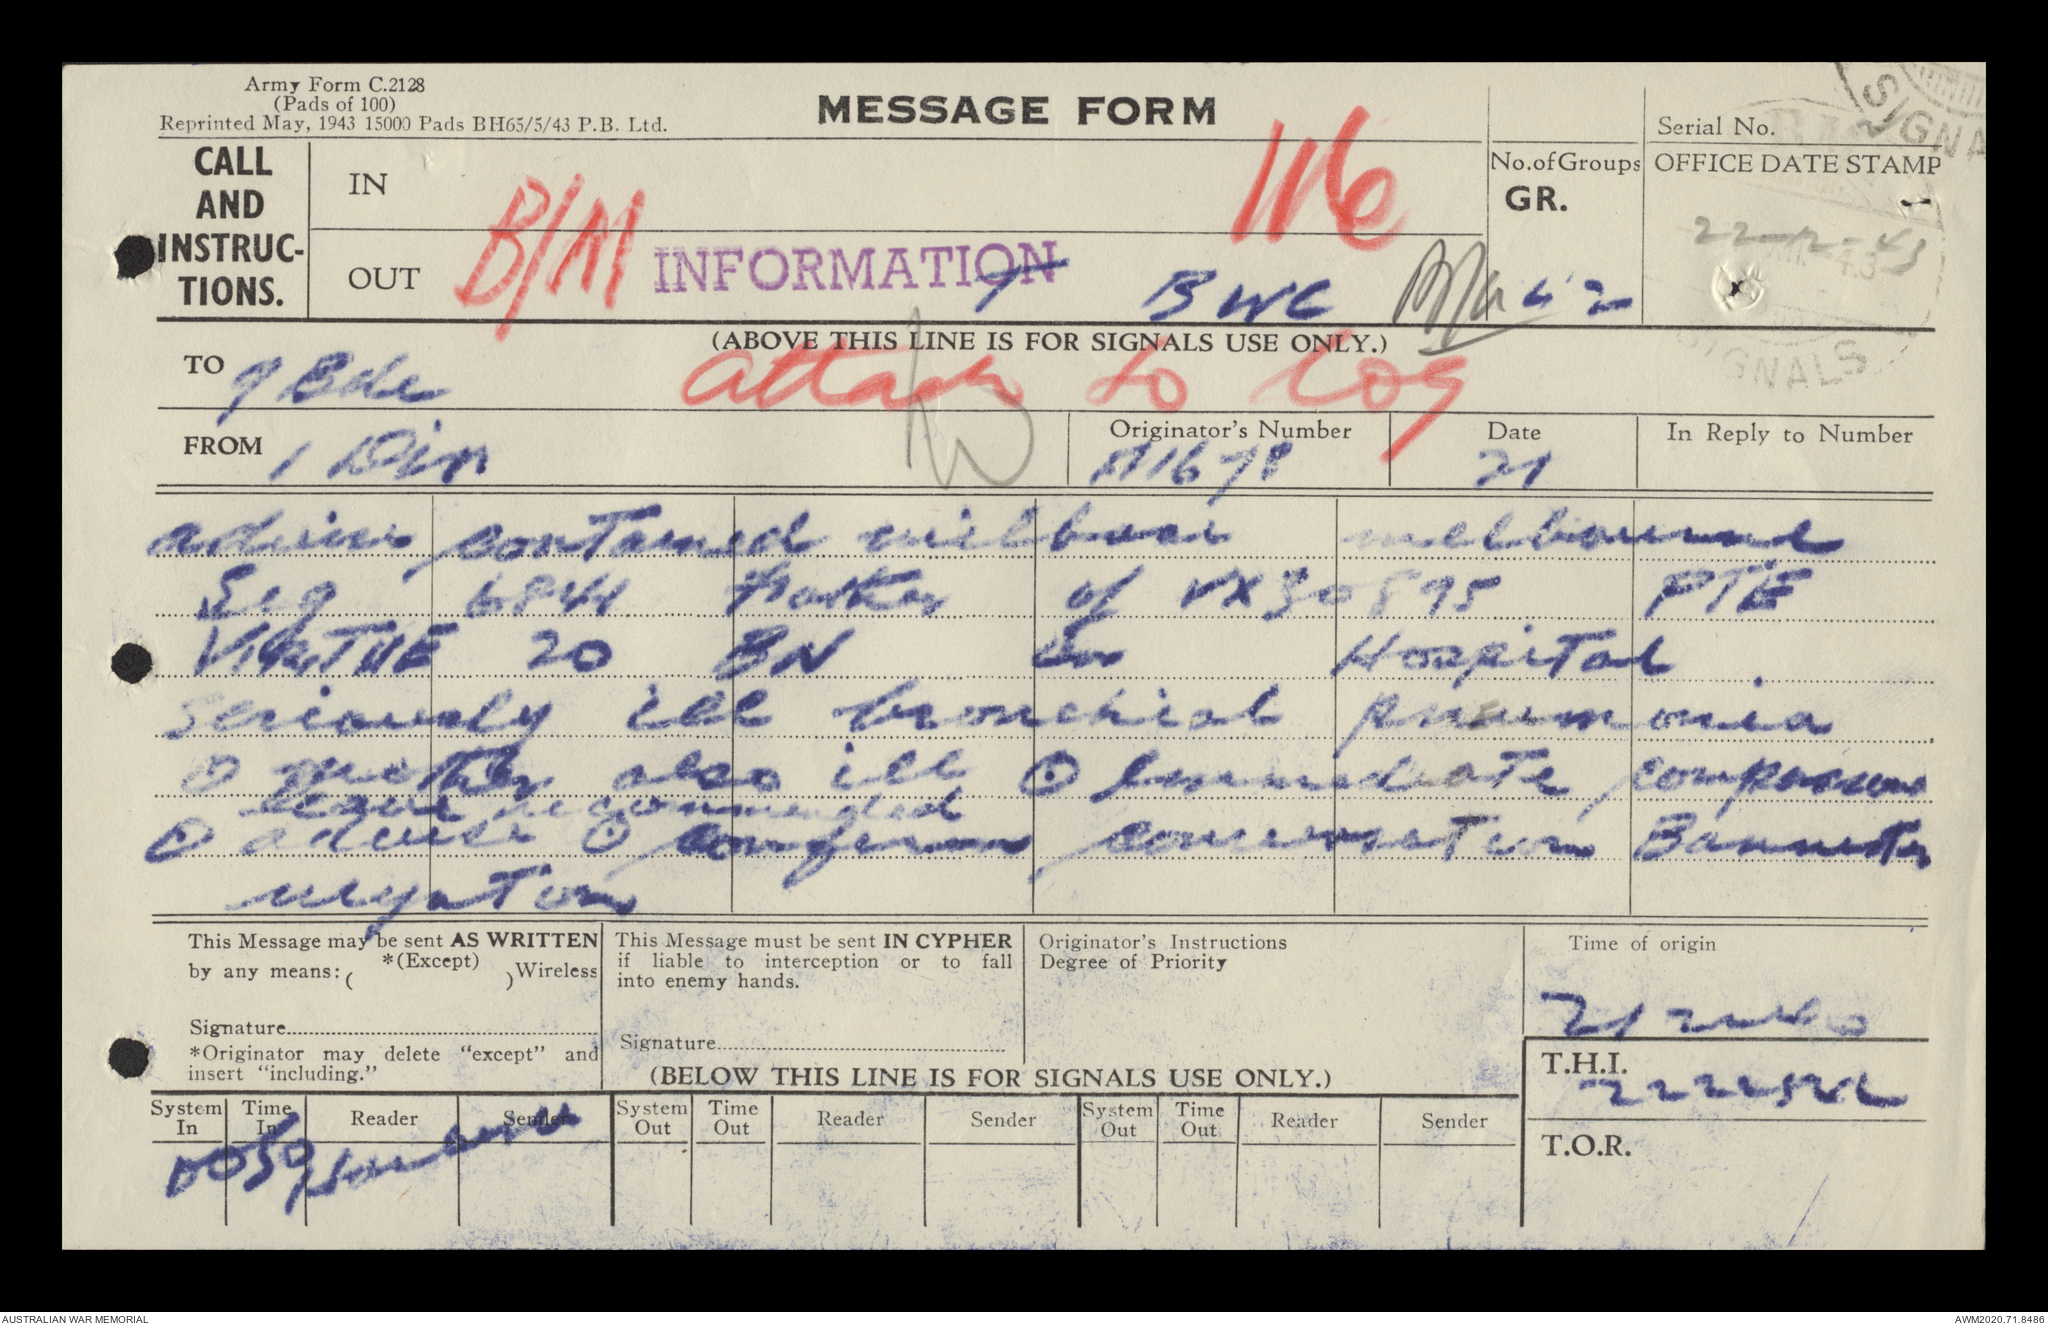 Army Form C.2128
(Pads of 100)
Reprinted May, 1943 15000 Pads BH65/5/43 P.B. Ltd.
MESSAGE FORM
116
Serial No.
SIGNALS
CALL
AND
INSTRUC-
TIONS.
IN
OUT
B/M
INFORMATION
BWC
No. of Groups
GR.
42
OFFICE DATE STAMP
22-12-43
SIGNALS
(ABOVE THIS LINE IS FOR SIGNALS USE ONLY.)
TO 9 Bde
attach to log
FROM 1 Div
Originator's Number
A1678
Date
21
In Reply to Number
contained milbase melbourne
Sig 6844 Father of VX30895 PTE
20 BN in Hospital
seriously ill bronchial pneumonia
⊙ mother also ill ⊙ Immediate compassionate
leave recommended
⊙ advise ⊙ Bannister
This Message may be sent AS WRITTEN
*(Except)
by any means: ( ) Wireless
Signature
*Originator may delete "except" and
insert "including."
This Message must be sent IN CYPHER
if liable to interception or to fall
into enemy hands.
Signature
Originator's Instructions
Degree of Priority
Time of origin
T.H.I.
T.O.R.
(BELOW THIS LINE IS FOR SIGNALS USE ONLY.)
System In
Time In
Reader
Sender
System Out
Time Out
Reader
Sender
System Out
Time Out
Reader
Sender
0059
AUSTRALIAN WAR MEMORIAL
AWM2020.71.8486